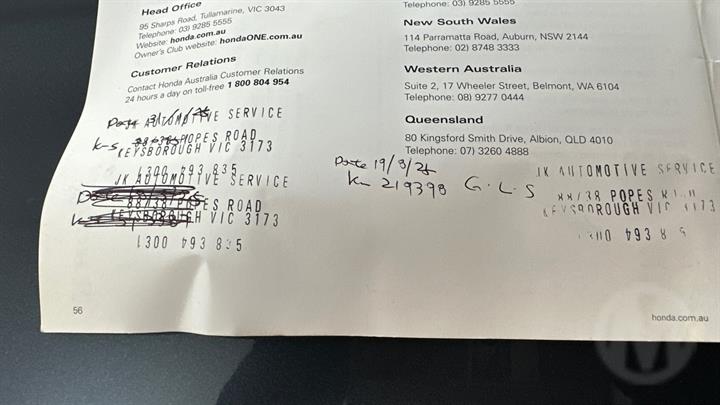 Head Office
95 Sharps Road, Tullamarine, VIC 3043
Telephone: 03) 9285 5555
Website: honda.com.au
Owner's Club website: hondaONE.com.au
Customer Relations
Contact Honda Australia Customer Relations
24 hours a day on toll-free 1 800 804 954
AUTOMOTIVE SERVICE
POPES ROAD
KEYSBOROUGH VIC 3173
1300 493 835
JK AUTOMOTIVE SERVICE
88/38 POPES ROAD
KEYSBOROUGH VIC 3173
1300 493 835
56
Telephone: 03) 9285 5555
New South Wales
114 Parramatta Road, Auburn, NSW 2144
Telephone: 02) 8748 3333
Western Australia
Suite 2, 17 Wheeler Street, Belmont, WA 6104
Telephone: 08) 9277 0444
Queensland
80 Kingsford Smith Drive, Albion, QLD 4010
Telephone: 07) 3260 4888
Date 19/3/25
Km 219398 G.L.S
JK AUTOMOTIVE SERVICE
88/38 POPES
KEYSBOROUGH VIC 3173
honda.com.au